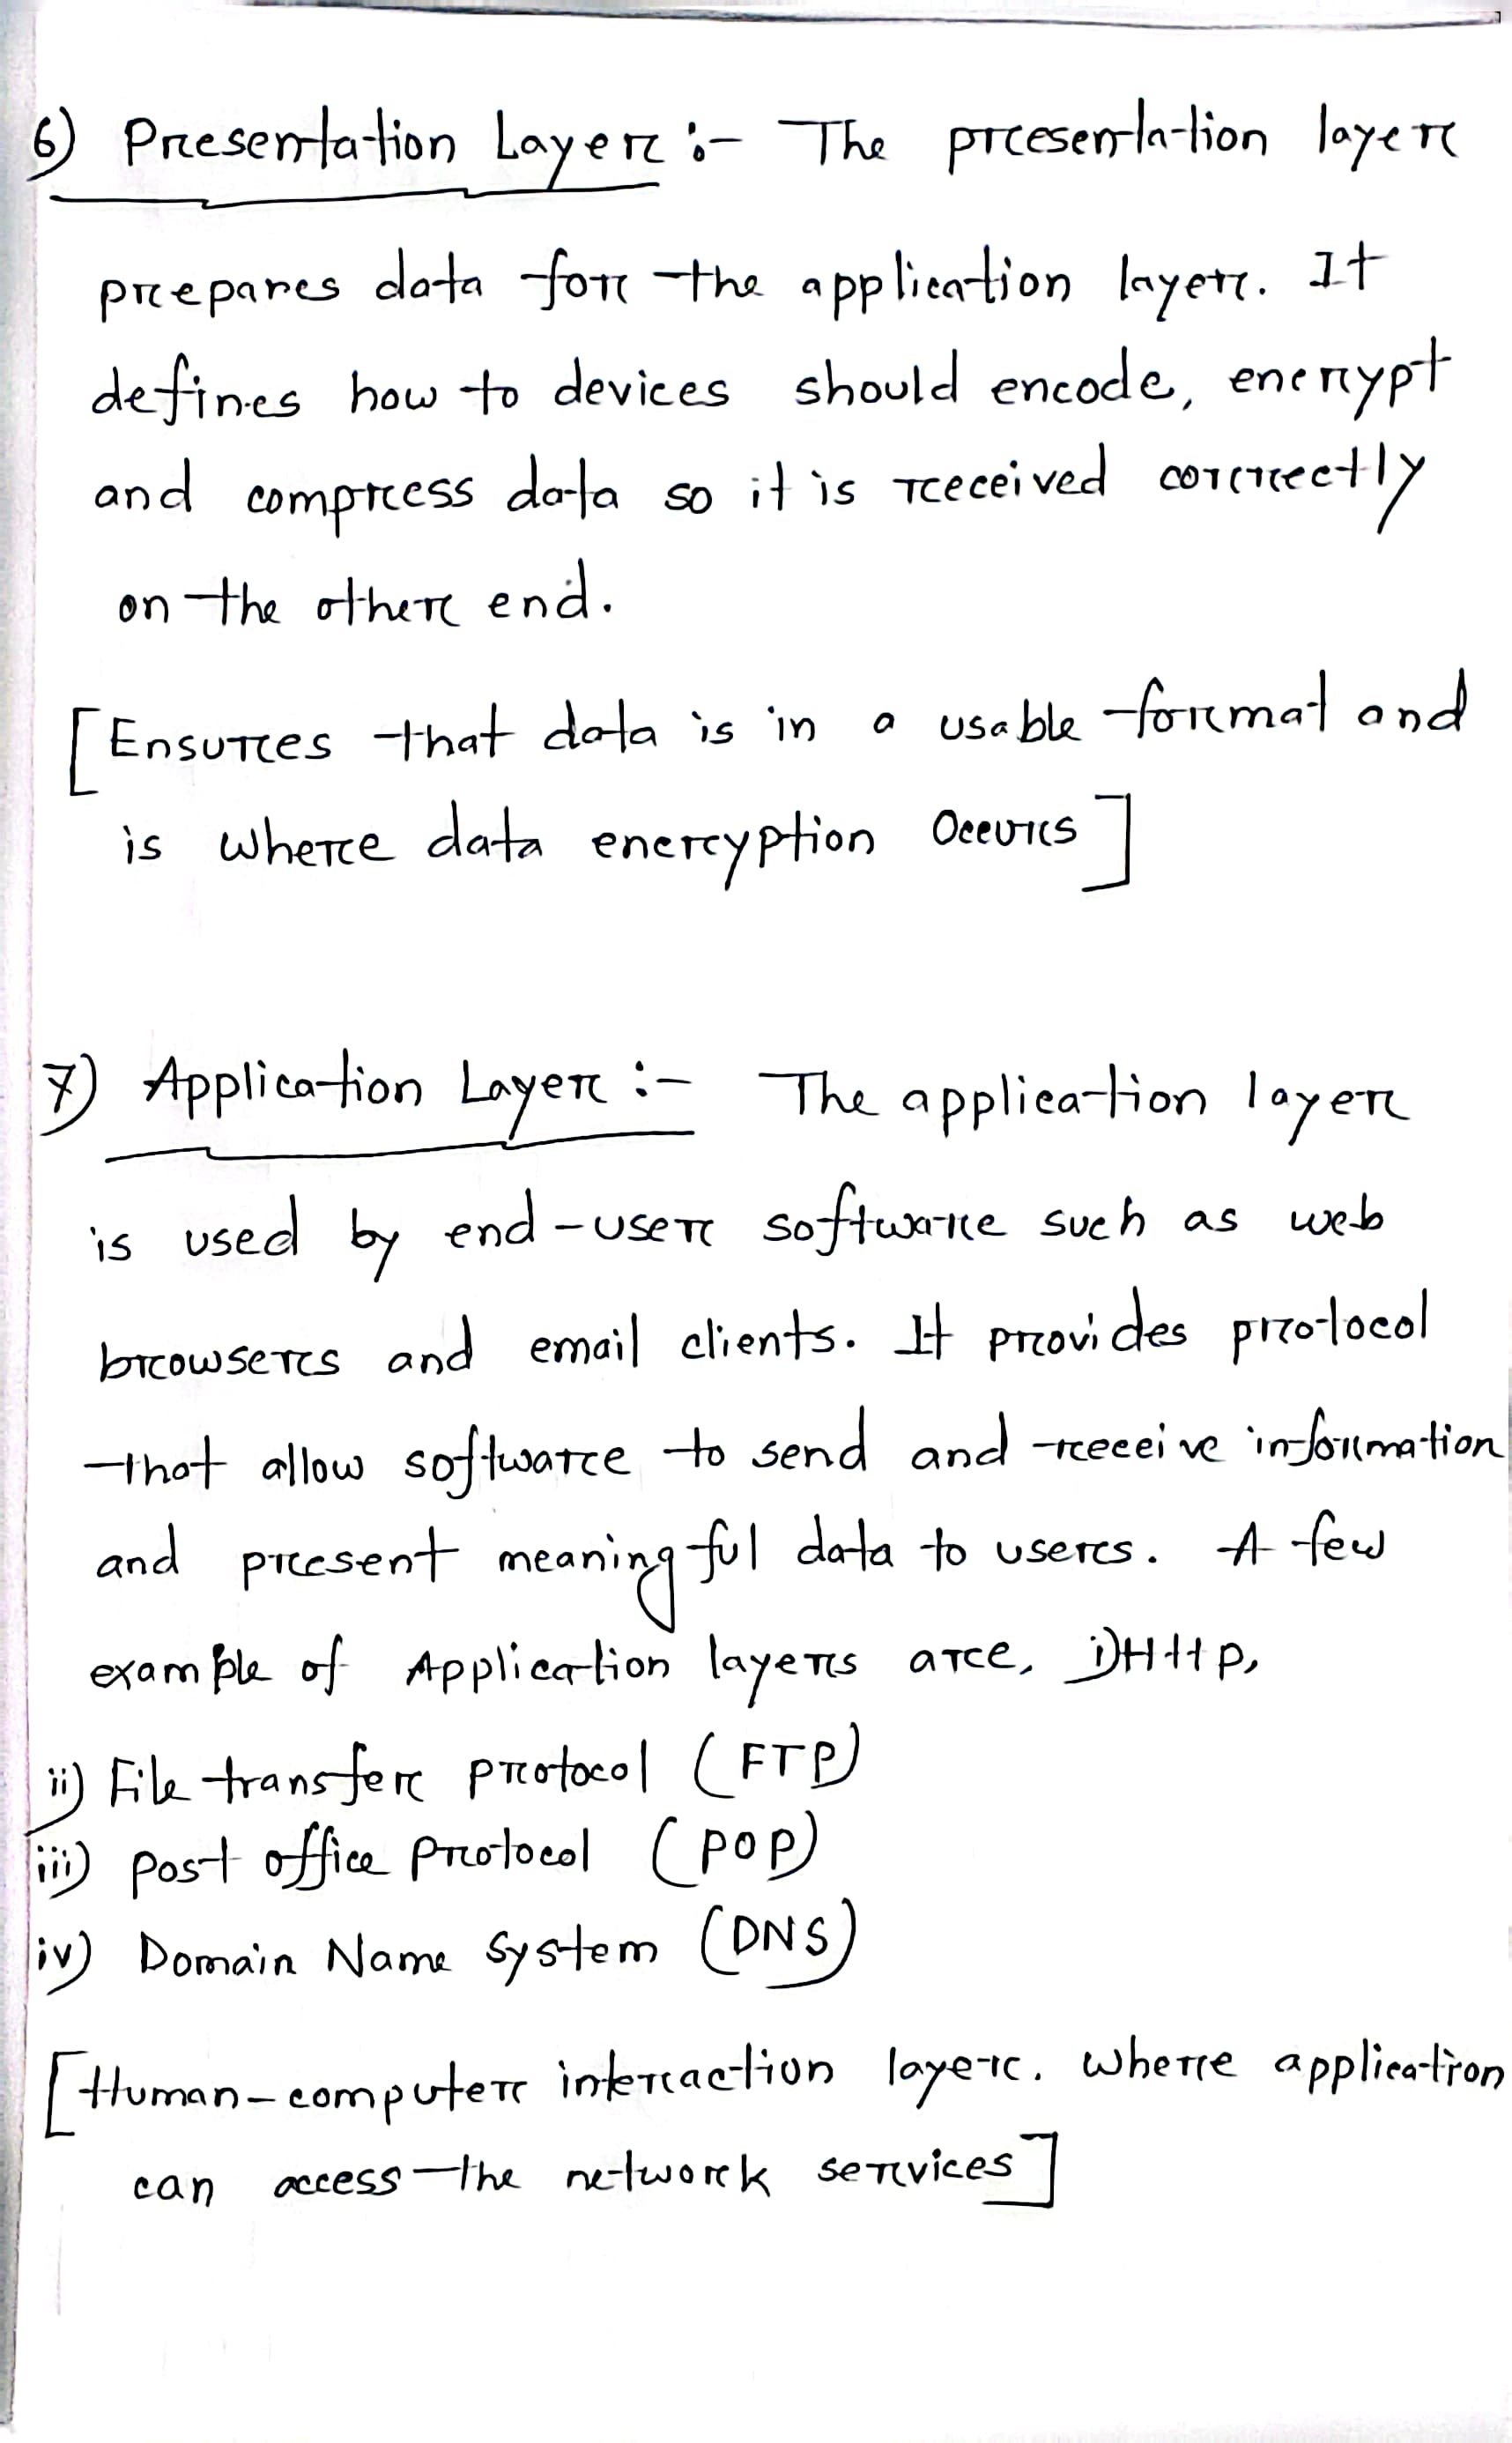 6) Presentation Layer :- The presentation layer
prepares data for the application layer. It
defines how to devices should encode, encrypt
and compress data so it is received correctly
on the other end.
[Ensures that data is in a usable format and
is where data encryption occurs]
7) Application Layer :- The application layer
is used by end-user software such as web
browsers and email clients. It provides protocol
that allow software to send and receive information
and present meaningful data to users. A few
example of Application layers are, i) Http,
ii) File transfer protocol (FTP)
iii) post office protocol (POP)
iv) Domain Name System (DNS)
[Human-computer interaction layer. Where application
can access the network services]